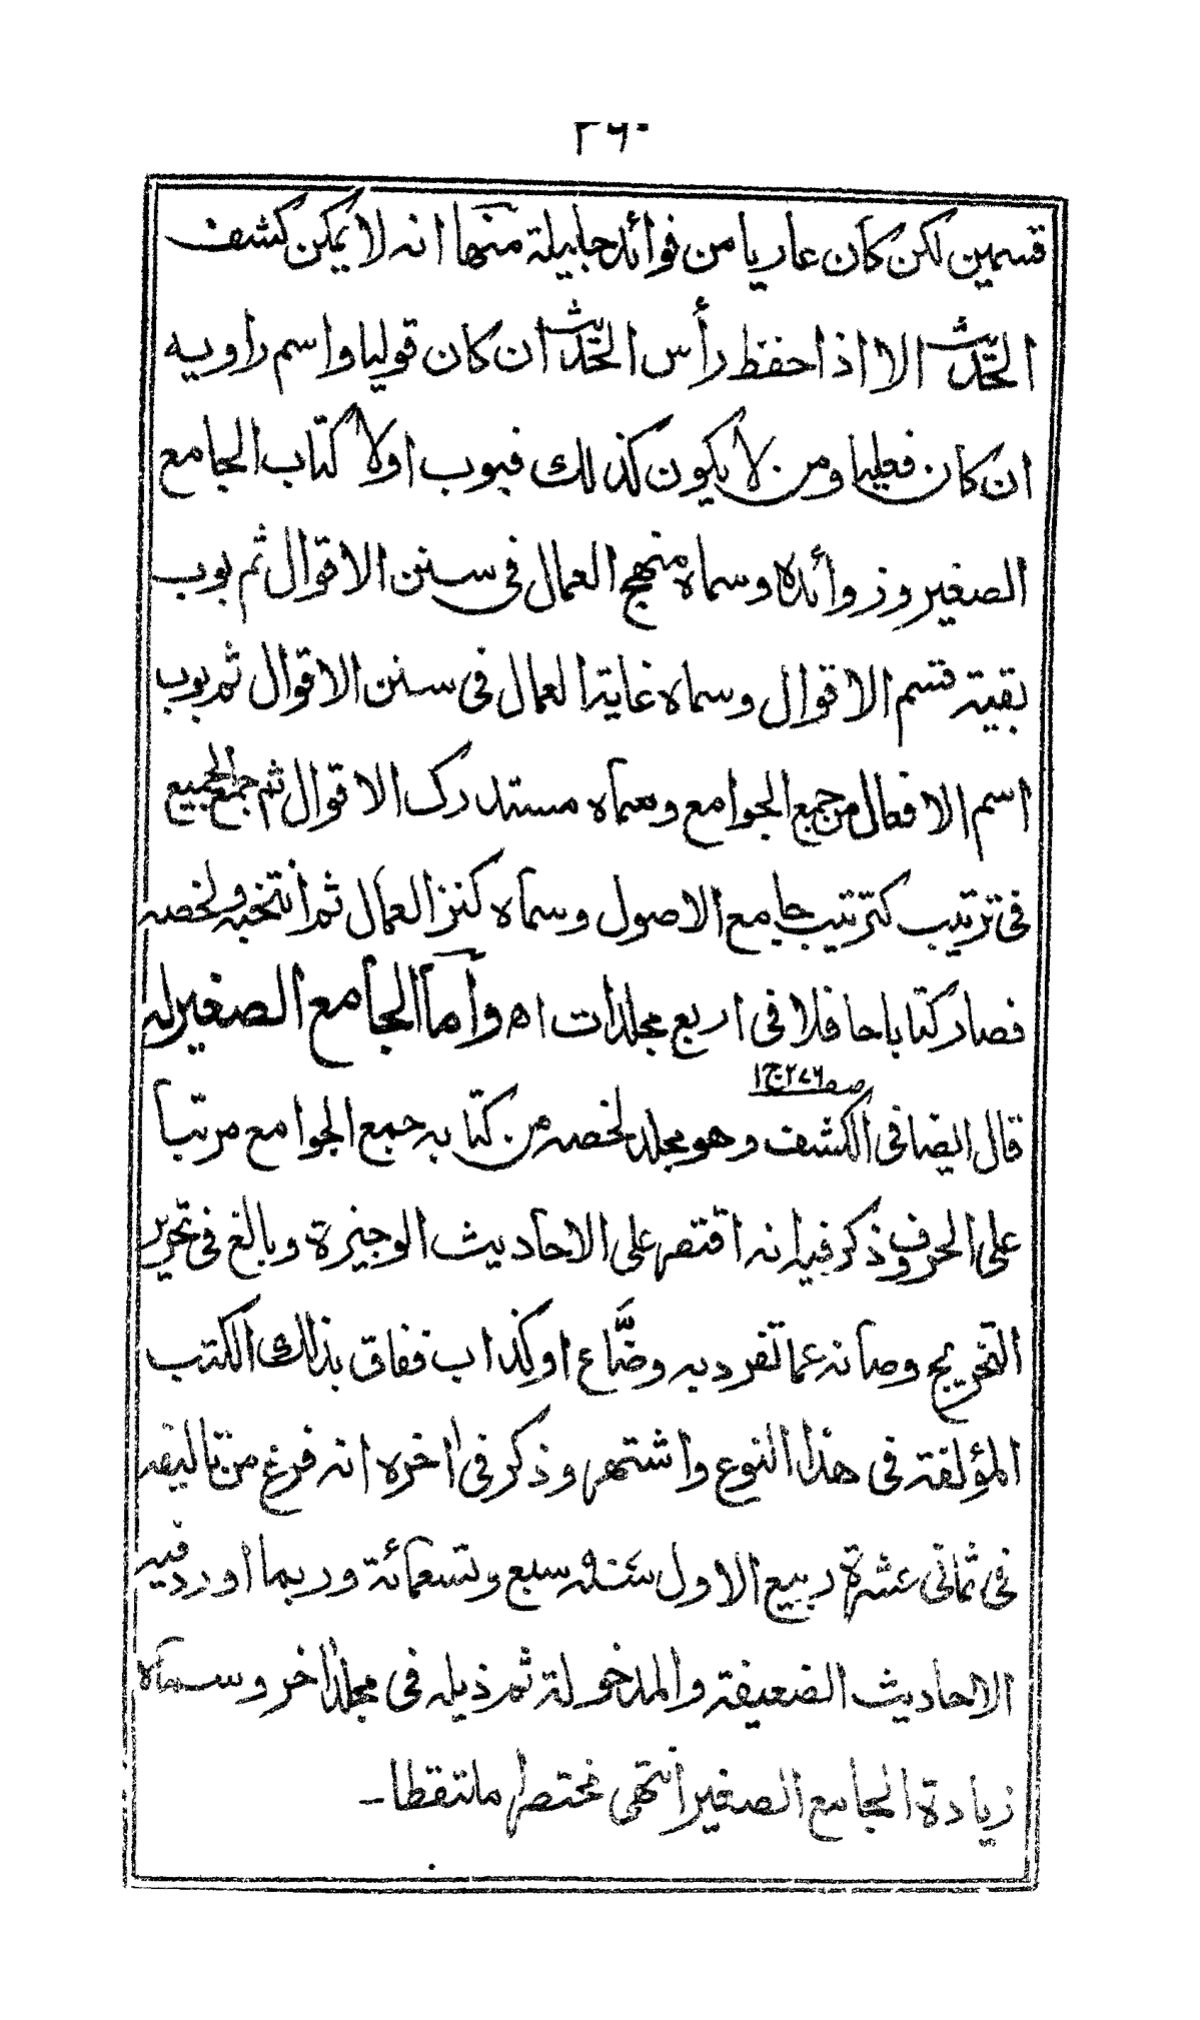 ٢٦٠
قسمين لكن كان عاريا من فوائد جليلة منها انه لا يمكن كشف
الحديث الا اذا حفظ رأس الحديث ان كان قوليا واسم راويه
ان كان فعليا ومن لا يكون كذلك فبوب اولا كتاب الجامع
الصغير وزوائده وسماه منهج العمال فى سنن الاقوال ثم بوب
بقية قسم الاقوال وسماه غاية العمال فى سنن الاقوال ثم بوب
اسم الافعال من جمع الجوامع وسماه مستدرك الاقوال ثم جمع الجميع
فى ترتيب كترتيب جامع الاصول وسماه كنز العمال ثم انتخبه ولخصه
فصار كتابا حافلا فى اربع مجلدات اه وأما الجامع الصغير له
صـ ٢٧٦ ج ١
قال ايضا فى الكشف وهو مجلد لخصه من كتابه جمع الجوامع مرتبا
على الحروف ذكر فيه انه اقتصر على الاحاديث الوجيزة وبالغ فى تحرير
التخريج وصانه عما تفرد به وضّاع او كذاب ففاق بذلك الكتب
المؤلفة فى هذا النوع واشتهر وذكر فى اخره انه فرغ من تاليفه
فى ثمانى عشرة ربيع الاول سنة سبع وتسعمائة وربما اورد فيه
الاحاديث الضعيفة والمدخولة ثم ذيله فى مجلد اخر وسماه
زيادة الجامع الصغير انتهى مختصرا ملتقطا۔